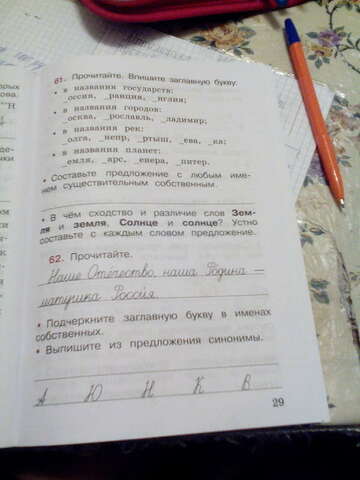 61. Прочитайте. Впишите заглавную букву.
• в названия государств:
_оссия, _ранция, _нглия;
• в названия городов:
_осква, _рославль, _ладимир;
• в названия рек:
_олга, _непр, _ртыш, _ева, _ка;
• в названия планет:
_емля, _арс, _енера, _питер.
• Составьте предложение с любым име-
нем существительным собственным.
• В чём сходство и различие слов Зем-
ля и земля, Солнце и солнце? Устно
составьте с каждым словом предложение.
62. Прочитайте.
Наше Отечество, наша Родина —
матушка Россия.
• Подчеркните заглавную букву в именах
собственных.
• Выпишите из предложения синонимы.
А Ю Н К В
29